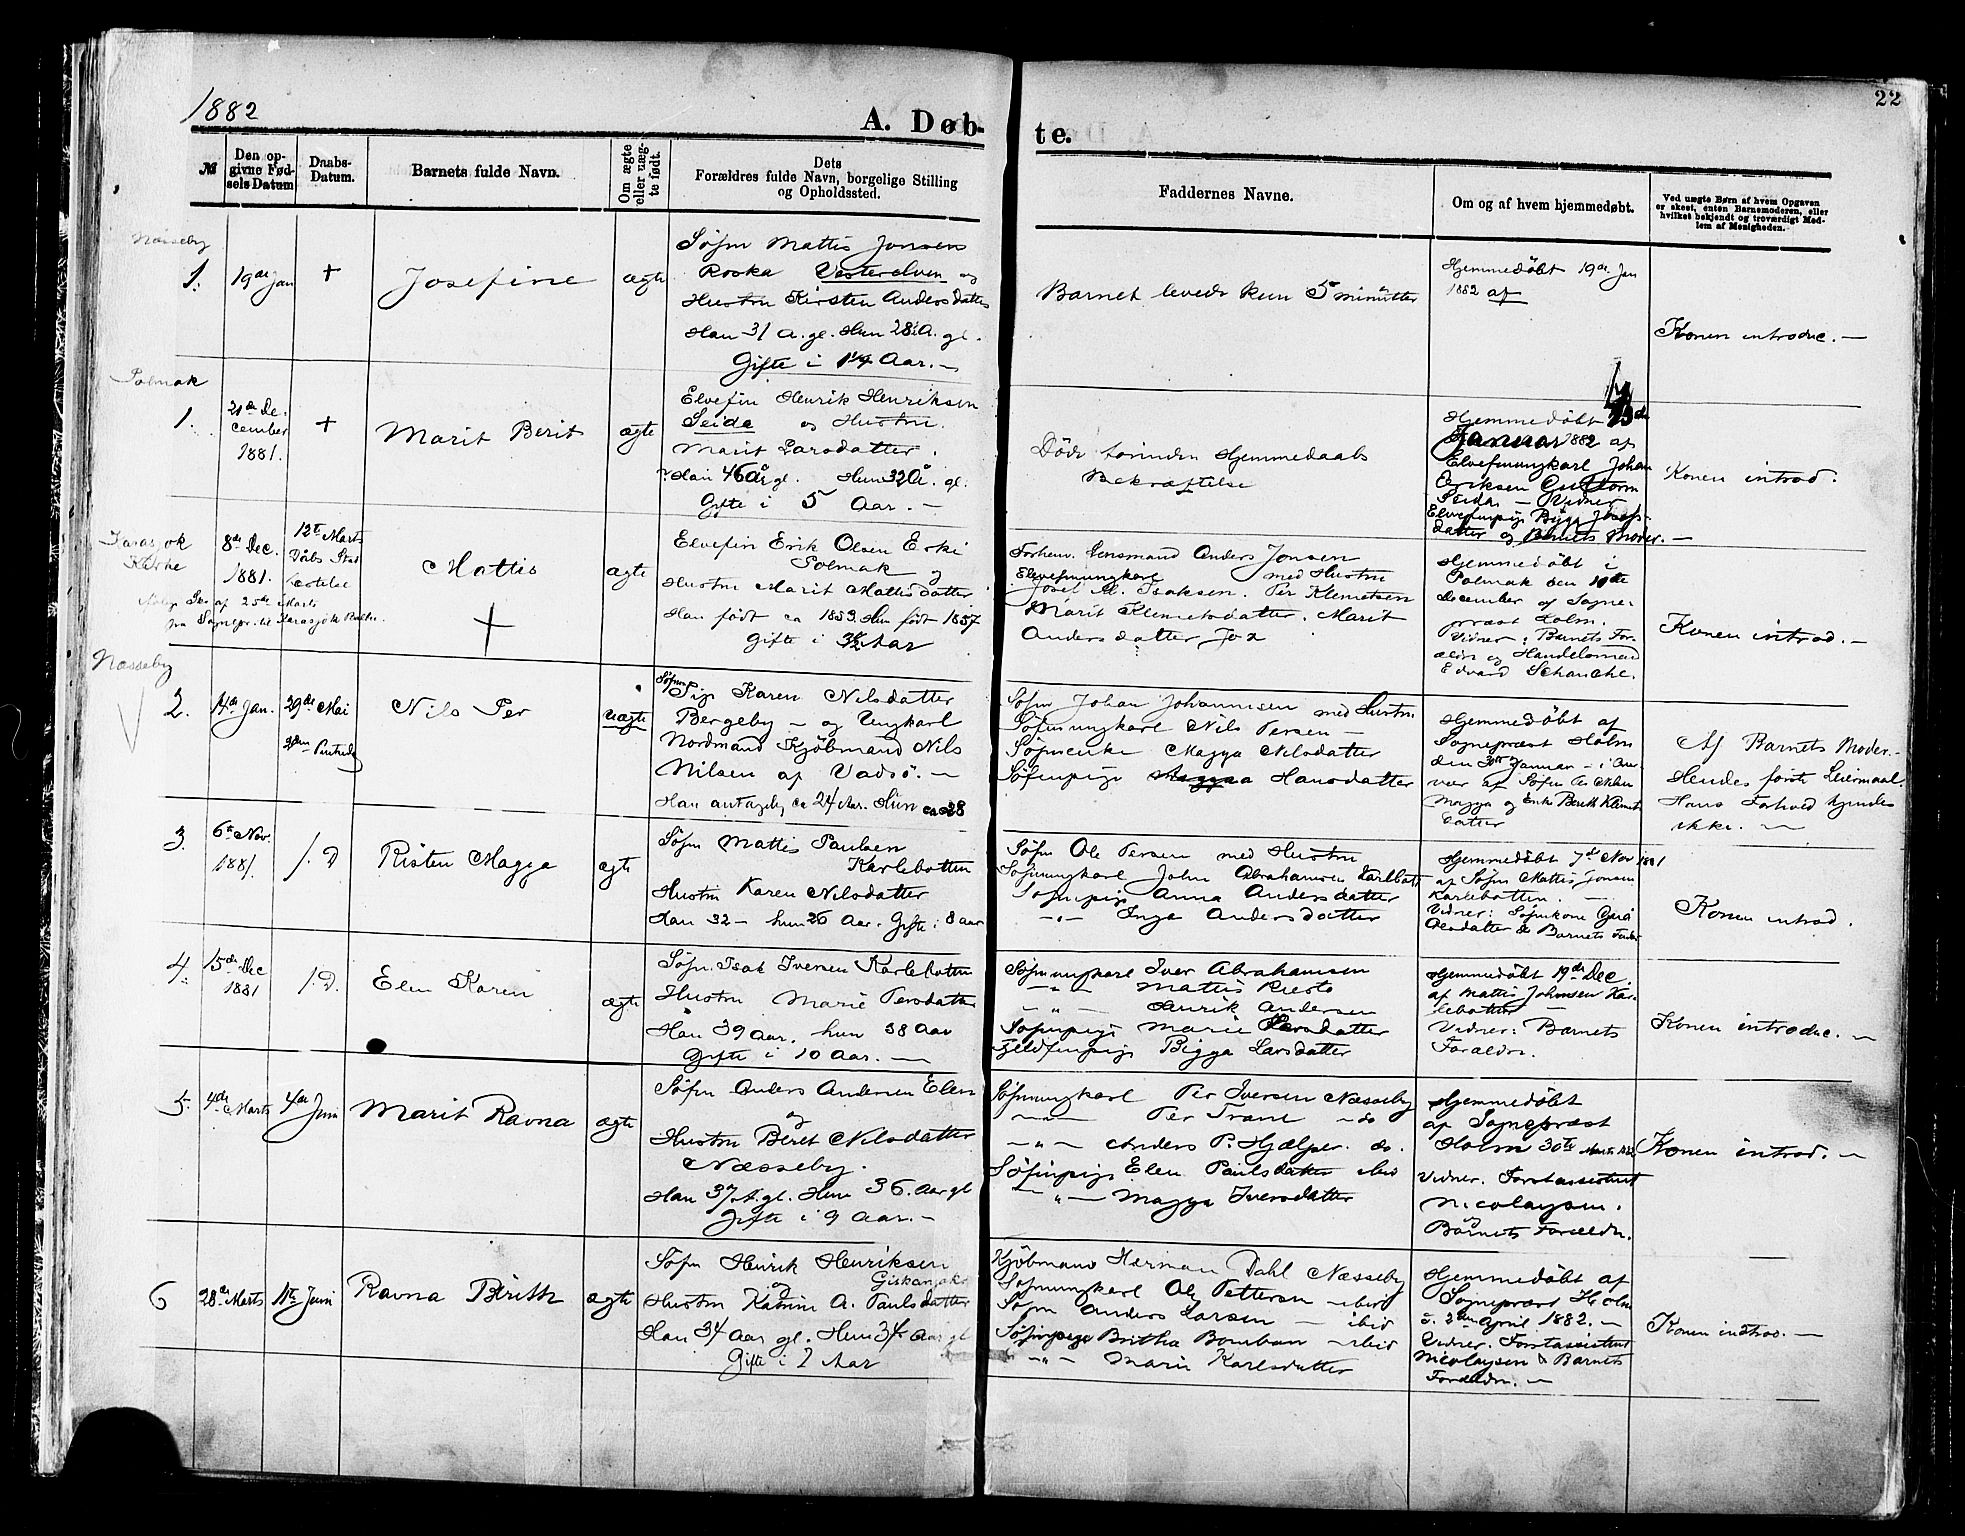 22
1882
A. Døb-
te.
№
Den op-
givne Fød-
sels Datum
Daabs-
Datum.
Barnets fulde Navn.
Om ægte
eller uæg-
te født.
Dets
Forældres fulde Navn, borgelige Stilling
og Opholdssted.
Faddernes Navne.
Om og af hvem hjemmedøbt.
Ved uægte Børn af hvem Opgaven
er skeet, enten Barnemoderen, eller
hvilket bekjendt og troværdigt Med-
lem af Menigheden.
Næsseby
1.
19de Jan
+
Josefine
ægte
Søfin Mattis Jonsen
Roska Vesterelven og
Hustru Kirsten Andersdatter
Han 31 A. gl. Hun 28 A. gl.
Gifte i Aar. —
Barnet levede kun 5 minutter
Hjemmedøbt 19de Jan
1882 af
Konen introduc. —
Polmak
1.
21de De-
cember
1881.
+
Marit Berit
ægte
Elvefin Henrik Henriksen
Seida og Hustru
Marit Larsdatter.
Han 46 Å gl. Hun 32 Å. gl.
Gifte i 5 Aar. —
Døde forinden Hjemmedaabs
Bekræftelse
Hjemmedøbt
Januar 1882 af
Elvefinungkarl Johan
Eriksen Guttorm
Seida — Vidner
Elvefinpige Bigga Josefs-
datter og Barnets Moder. —
Konen introd.
Karasjok
Kirke
8de Dec.
1881.
12te Marts
Mattis
+
ægte
Elvefin Erik Olsen Erki
Polmak og
Hustru Marit Mattisdatter
Han født ca 1853. Hun født 1857
Gifte i Aar
Forhenv. Lensmand Anders Jonsen
Elvefinungkarl med Hustru
Josef M. Isaksen. Per Klemetsen
Marit Klemetsdatter. Marit
Andersdatter
Hjemmedøbt i
Polmak den
December af Sogne-
præst Holm.
Vidner: Barnets For-
ældre og Handelsmand
Edvard Schanche.
Konen introd. —
Næsseby
2.
14de Jan.
29de Mai
Nils Per
uægte
Søfin Pige Karen Nilsdatter
Bergeby — og Ungkarl
Nordmand Kjøbmand Nils
Nilsen af Vadsø. —
Han antagelig ca 24 Aar. Hun ca 28
Søfin Johan Johannesen med Hustru
Søfinungkarl Nils Persen —
Søfinenke Magga Nilsdatter
Søfinpige Hansdatter
Hjemmedøbt af
Sognepræst Holm
den Januar — i nær-
vær af Søfin
Magga og Enke Berit Klemets
datter
Af Barnets Moder. —
Hendes første Leiermaal
Hans Forhold kjendes
ikke. —
3.
6te Nov.
1881.
1. D
Risten Magga
ægte
Søfin Mattis Paulsen
Karlebotten
Hustru Karen Nilsdatter
Han 32 — hun 26 Aar. Gifte i 8 aar
Søfin Ole Persen med Hustru
Søfinungkarl John Abrahamsen Karlbott
Søfinpige Anna Andersdatter
—"— Inga Andersdatter
Hjemmedøbt 7de Nov 1881
af Søfin Mattis Jonsen
Karlebotten. —
Vidner: Søfinkone
datter & Barnets Fader
Konen introd.
4.
15de Dec
1881
1. D.
Elen Karen
ægte
Søfin Isak Iversen Karlebotten
Hustru Marie Persdatter
Han 39 Aar, hun 38 Aar
Gifte i 10 Aar. —
Søfinungkarl Iver Abrahamsen
—"— Mattis
—"— Henrik Andersen
Søfinpige Marie Larsdatter
Fjeldfinpige Bigga Larsdatter
Hjemmedøbt 19de Dec.
af Mattis Johnsen Kar-
lebotten —
Vidner: Barnets
Forældre.
Konen introduc. —
5.
4de Marts
4de Juni
Marit Ravna
ægte
Søfin Anders Andersen Elen
og
Hustru Beret Nilsdatter
Næsseby.
Han 37 A. gl. Hun 36. Aar gl
Gifte i 9 Aar. —
Søfinungkarl Per Iversen Næsseby
—"— Per Trane do
—"— Anders P. Hjælper do.
Søfinpige Elen Paulsdatter ibid
—"— Magga Iversdatter
Hjemmedøbt
af Sognepræst
Holm 30te Marts
Vidner. Forstassistent
Nicolaysen.
og
Barnets Forældre.
Konen introd. —
6
28de Marts
11te Juni
Ravna Birith
ægte
Søfin Henrik Henriksen
og
Hustru Katrine A. Paulsdatter
Han 34 Aar gl. Hun 34 Aar gl
Gifte i 2 Aar
Kjøbmand Herman Dahl Næsseby
Søfinungkarl Ole Pettersen ibid
Søfin Anders Larsen — ibid
Søfinpige Britha Bomban ibid
—"— Marie Karlsdatter
Hjemmedøbt af
Sogneprest Holm
d. 2den April 1882. —
Vidner. Forstassistent
Nicolaysen & Barnets
Forældre. —
Konen introd. —